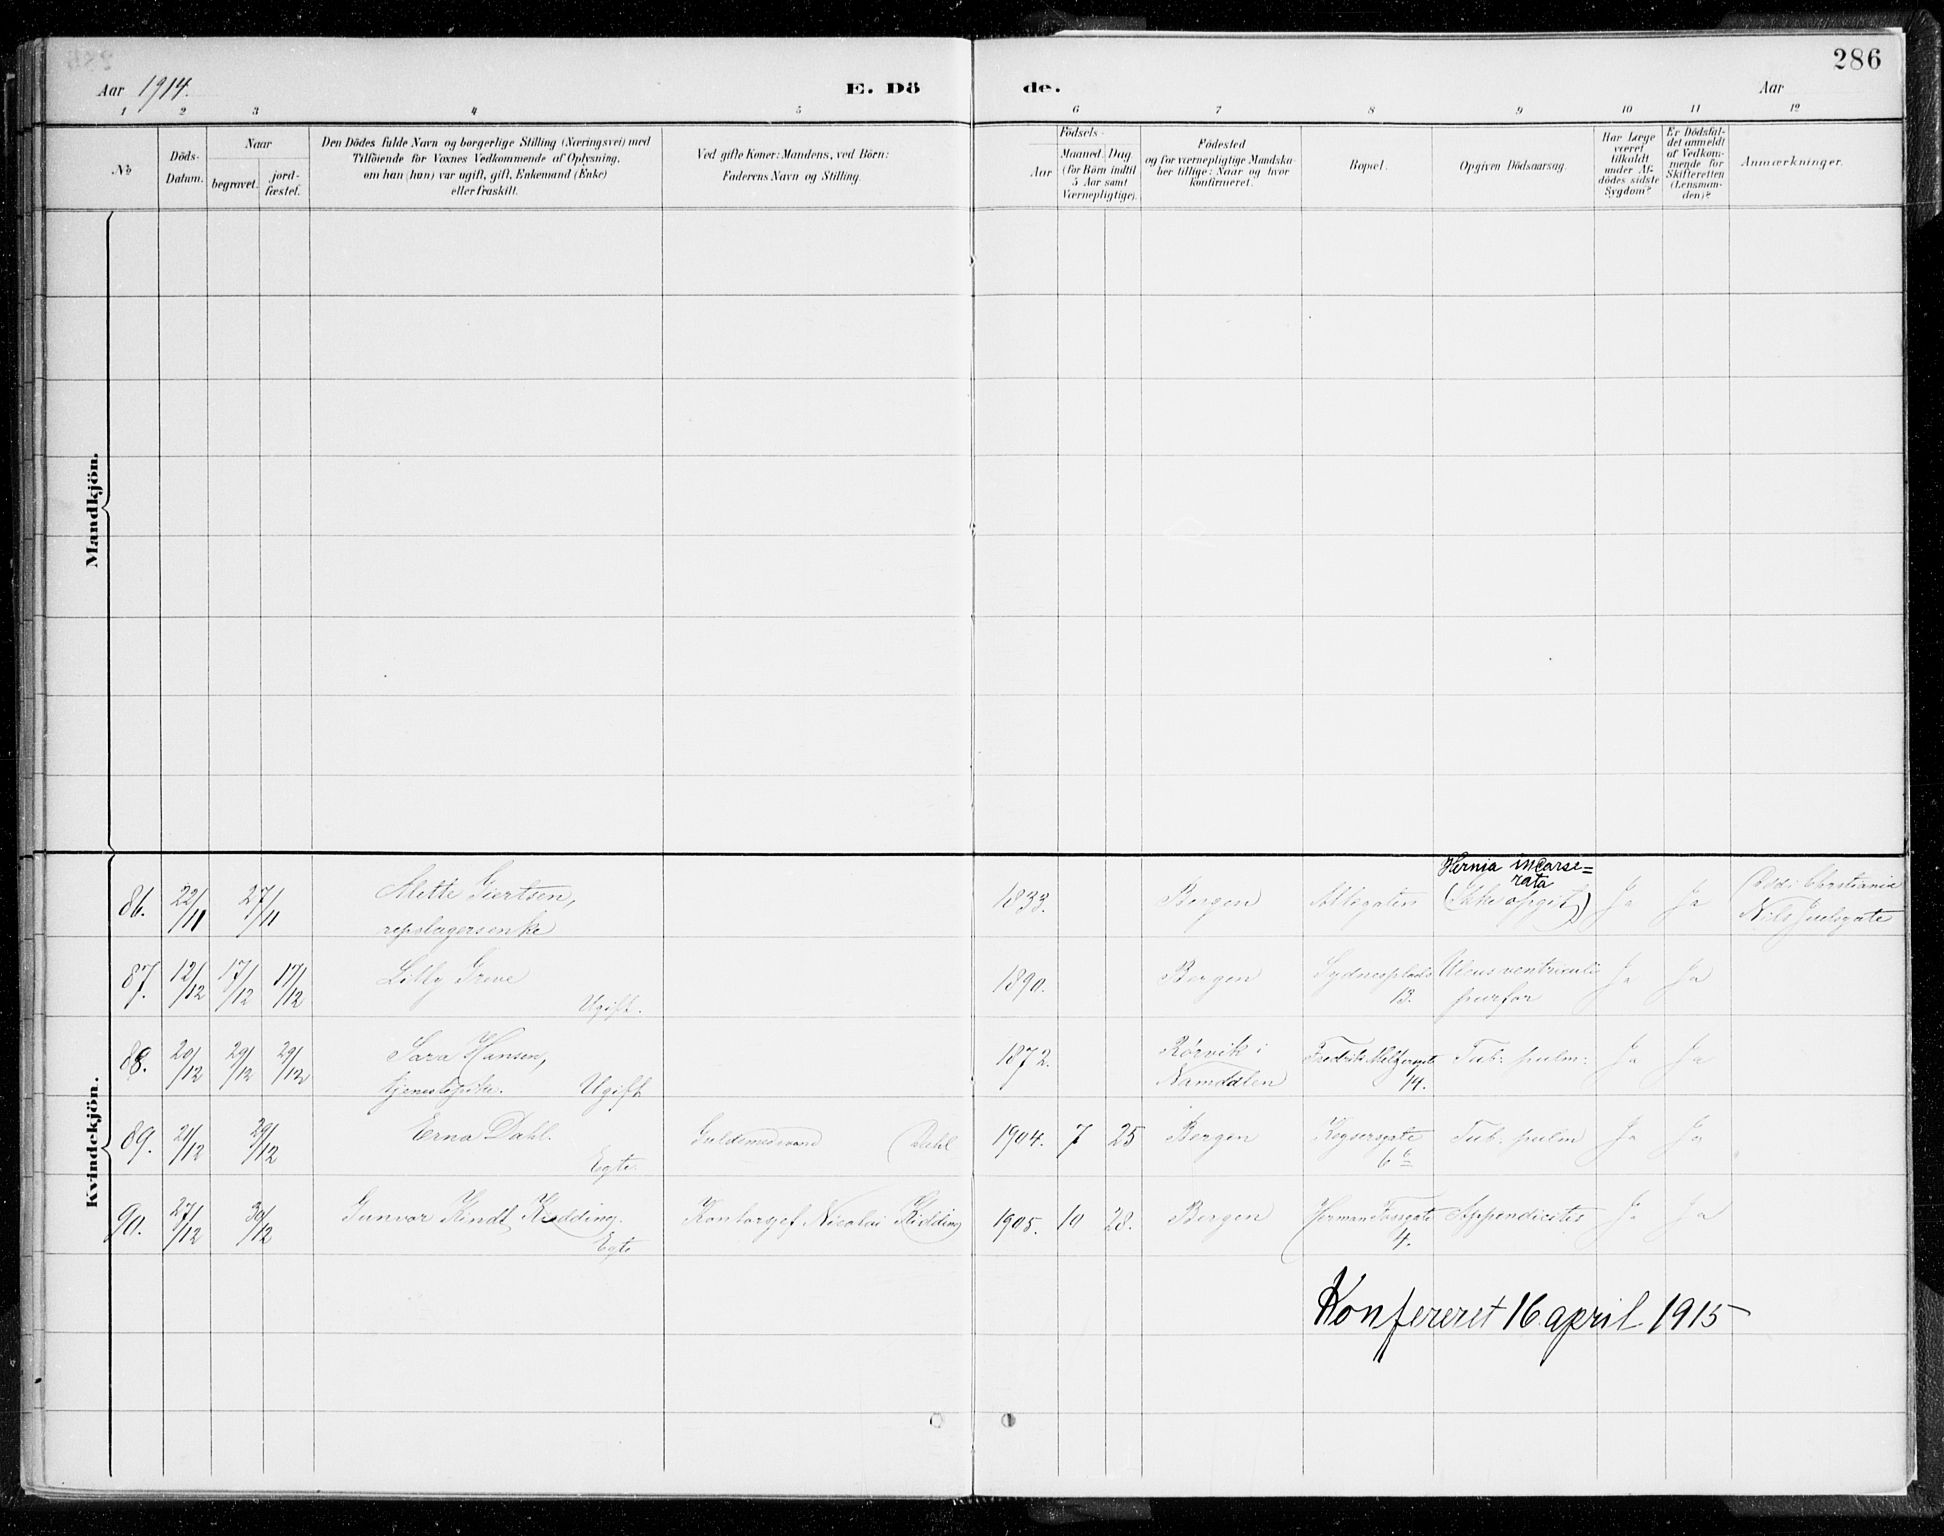 286
Aar 1914.
E. Dö de.
Aar
1 2 3 4 5 6 7 8 9 10 11 12
№
Döds-
Datum.
Naar
begravet.
jord-
fæstet.
Den Dödes fulde Navn og borgerlige Stilling (Næringsvei) med
Tilföiende for Voxnes Vedkommende af Oplysning,
om han (hun) var ugift, gift, Enkemand (Enke)
eller fraskilt.
Ved gifte Koner: Mandens, ved Börn:
Faderens Navn og Stilling.
Födsels-
Aar
Maaned. Dag
(for Börn indtil
5 Aar samt
Værnepligtige).
Födested
og for værnepligtige Mandska-
ber tillige: Naar og hvor
konfirmeret.
Bopæl.
Opgiven Dödsaarsag.
Har Læge
været
tilkaldt
under Af-
dödes sidste
Sygdom?
Er Dödsfal-
det anmeldt
af Vedkom-
mende for
Skifteretten
(Lensman-
den)?
Anmærkninger.
Mandkjön.
Kvindekjön.
Hernia incarse=
rata
86. 22/11 27/11 Mette Giertsen, 1833. Bergen Allegaten (Ikke opgit) Ja Ja Christiania
repslagerenke Nils Juelsgate
87. 12/12 17/12 17/12 Lilly Greve 1890. Bergen Sydnesplads Ulcus ventriculi Ja Ja
Ugift. 13. perfor
88. 20/12 29/12 29/12 Sara Hansen, 1872. Rørvik i Fredrik Meltzersgate Tub. pulm. Ja Ja
tjenestepike. Ugift Namdalen 14.
89. 21/12 29/12 Erna Dahl. Guldsmedsvend Dahl 1904. 7 25 Bergen Kroken Tub. pulm Ja Ja
Egte. 6
90. 27/12 30/12 Gunvor Kindt Kidding. Kontorchef Nicolai Kidding 1905. 10 28. Bergen Herman Fossgate Appendicites Ja Ja
Egte 4.
Konfereret 16 april 1915